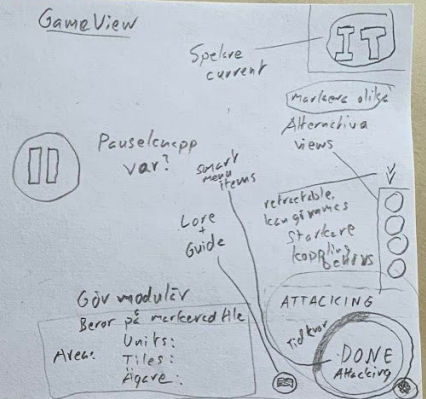 GameView
Spelare
current
IT
Markera olika
Alternativa
views
Pauseknapp
var?
smart
menu
items
retractable,
kan gömmas
Starkare
koppling
behövs
Lore
+
Guide
Gör modulär
Beror på markerad tile
Area:
Units:
Tiles:
Ägare:
ATTACKING
Tid kvar
DONE
Attacking